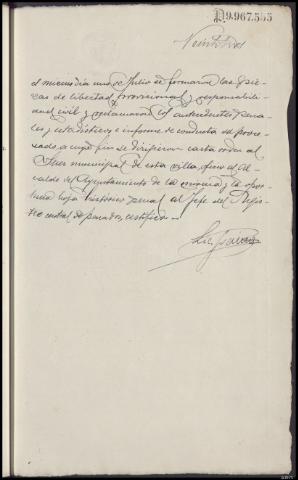 D9.967.555
Veintidos
el mismo dia uno de Julio se formaron las pie-
zas de libertad provisional y responsabili-
dad civil y reclamaron los antecedentes pena-
les y estadisticos e informe de conducta del proce-
sado, a cuyo fin se dirigieron carta orden al
Juez municipal de esta villa, oficio al Al-
calde del Ayuntamiento de la misma y la opor-
tuna hoja historico penal al Jefe del Regis-
tro central de penados, certifico.—